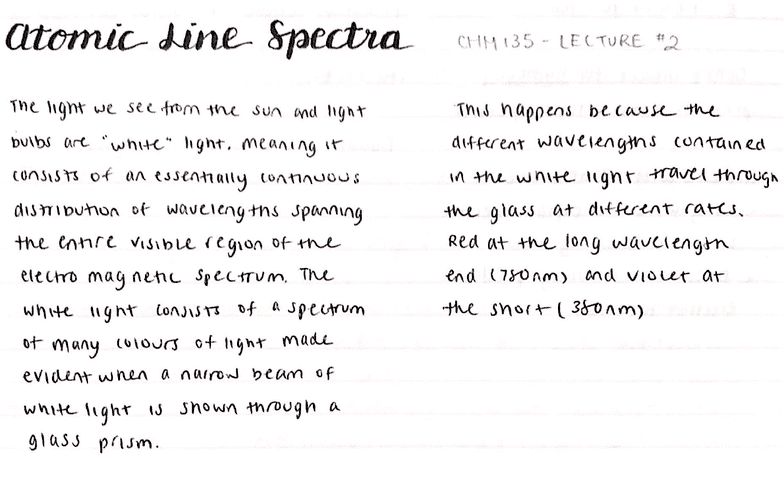 Atomic Line Spectra
CHM 135 - LECTURE #2
The light we see from the sun and light
bulbs are "white" light, meaning it
consists of an essentially continuous
distribution of wavelengths spanning
the entire visible region of the
electro magnetic spectrum. The
white light consists of a spectrum
of many colours of light made
evident when a narrow beam of
white light is shown through a
glass prism.
This happens because the
different wavelengths contained
in the white light travel through
the glass at different rates.
Red at the long wavelength
end (780nm) and violet at
the short (380nm)